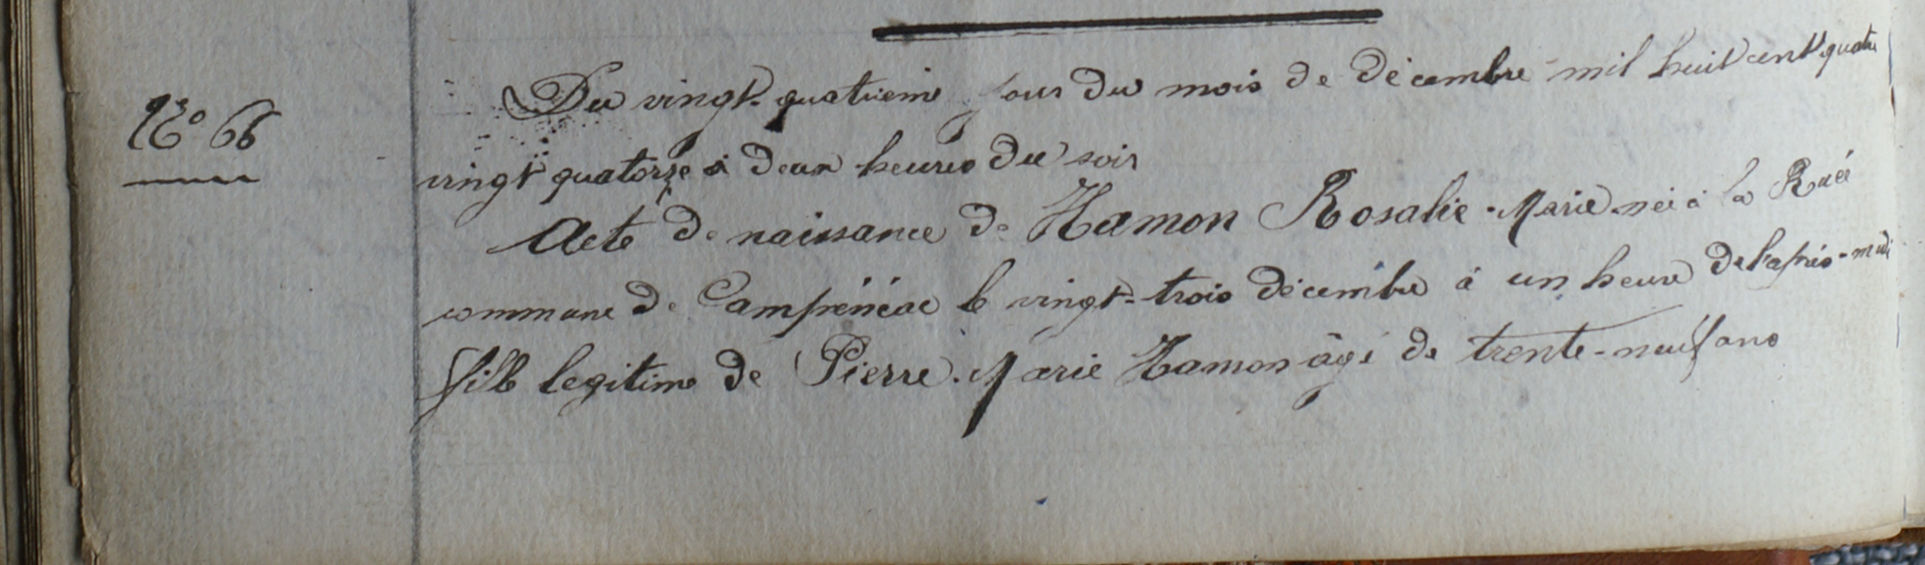 N° 66
Du vingt-quatrième jour du mois de décembre mil huit cent quatre
vingt quatorze à deux heures du soir
Acte de naissance de Hamon Rosalie-Marie née à la Ruée
commune de Campénéac le vingt-trois décembre à un heure de l'après-midi
fille legitime de Pierre-Marie Hamon âgé de trente-neuf ans